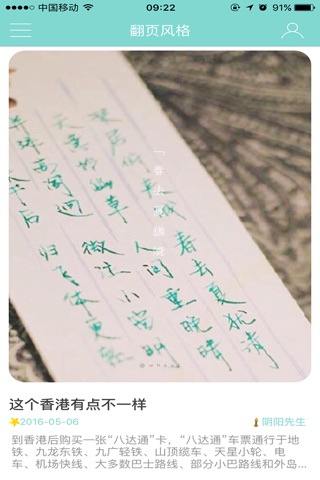 中国移动
09:22
91%
翻页风格
居俯夹城 春去夏犹清
天意怜幽草 人间重晚晴
并添高阁迥 微注小窗明
干后 归飞体更轻
这个香港有点不一样
2016-05-06
阴阳先生
到香港后购买一张“八达通”卡，“八达通”车票通行于地
铁、九龙东铁、九广轻铁、山顶缆车、天星小轮、电
车、机场快线、大多数巴士路线、部分小巴路线和外岛...